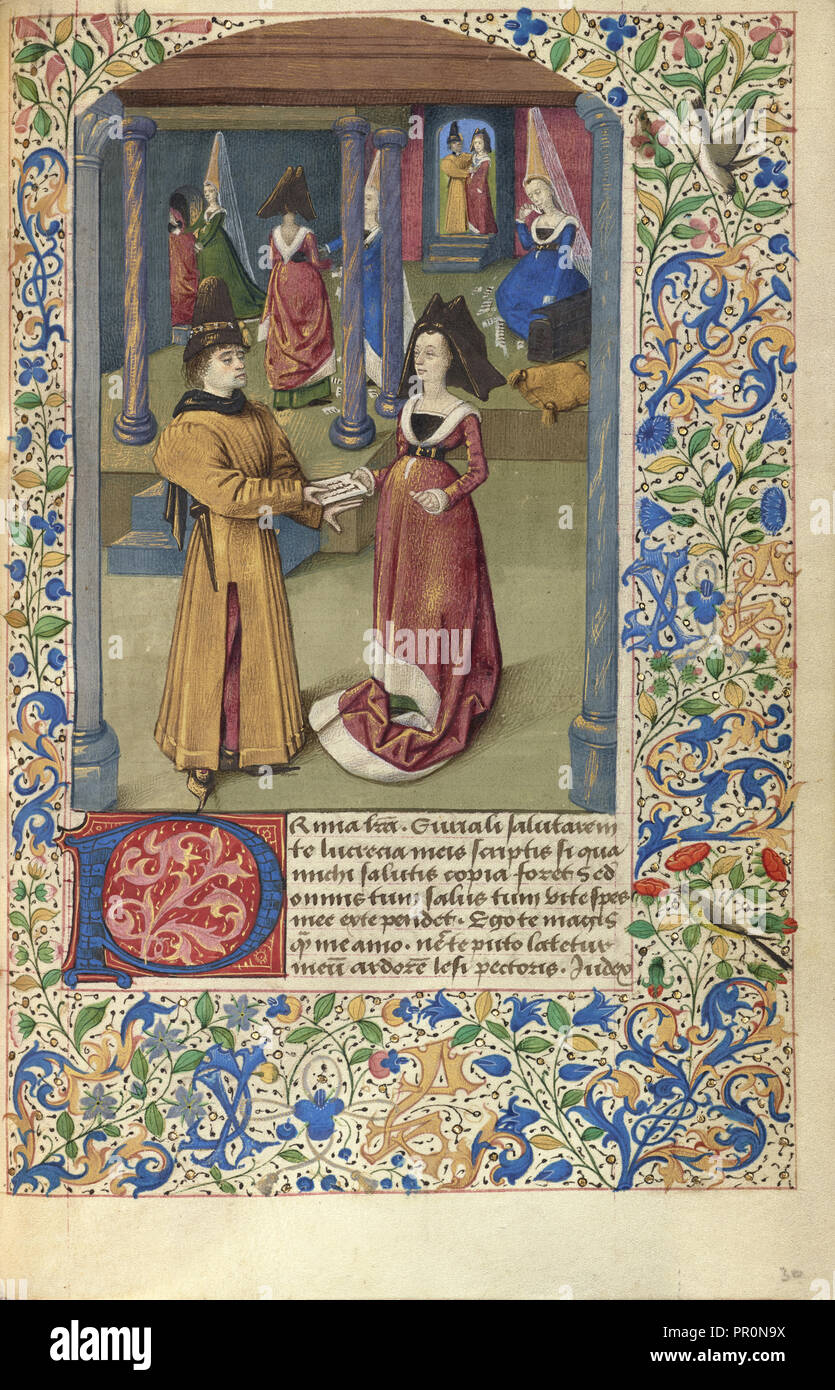 Rima lra. Euriali salutarem
te lucrecia meis scriptis si qua
michi salutis copia foret Sed
omnis tum salus tum vite spes
mee exte pendet. Ego te magis
qm me amo. nec te puto latetur
meu ardore lesi pectoris. Judex
30
alamy
alamy
Image ID: PR0N9X
www.alamy.com